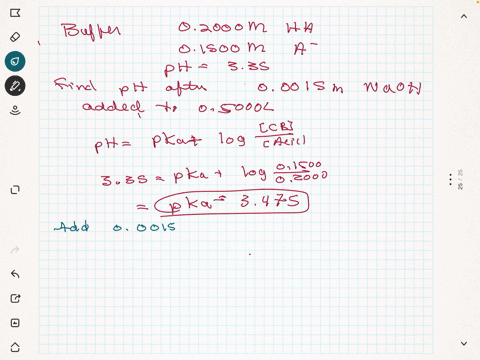 Buffer 0.2000 M HA
0.1500 M A⁻
pH = 3.35
Find pH after 0.0015 m NaOH
added to 0.5000L
pH = pKa + log [CB]/[Acid]
3.35 = pKa + log 0.1500/0.2000
= pKa = 3.475
Add 0.0015
25 / 25